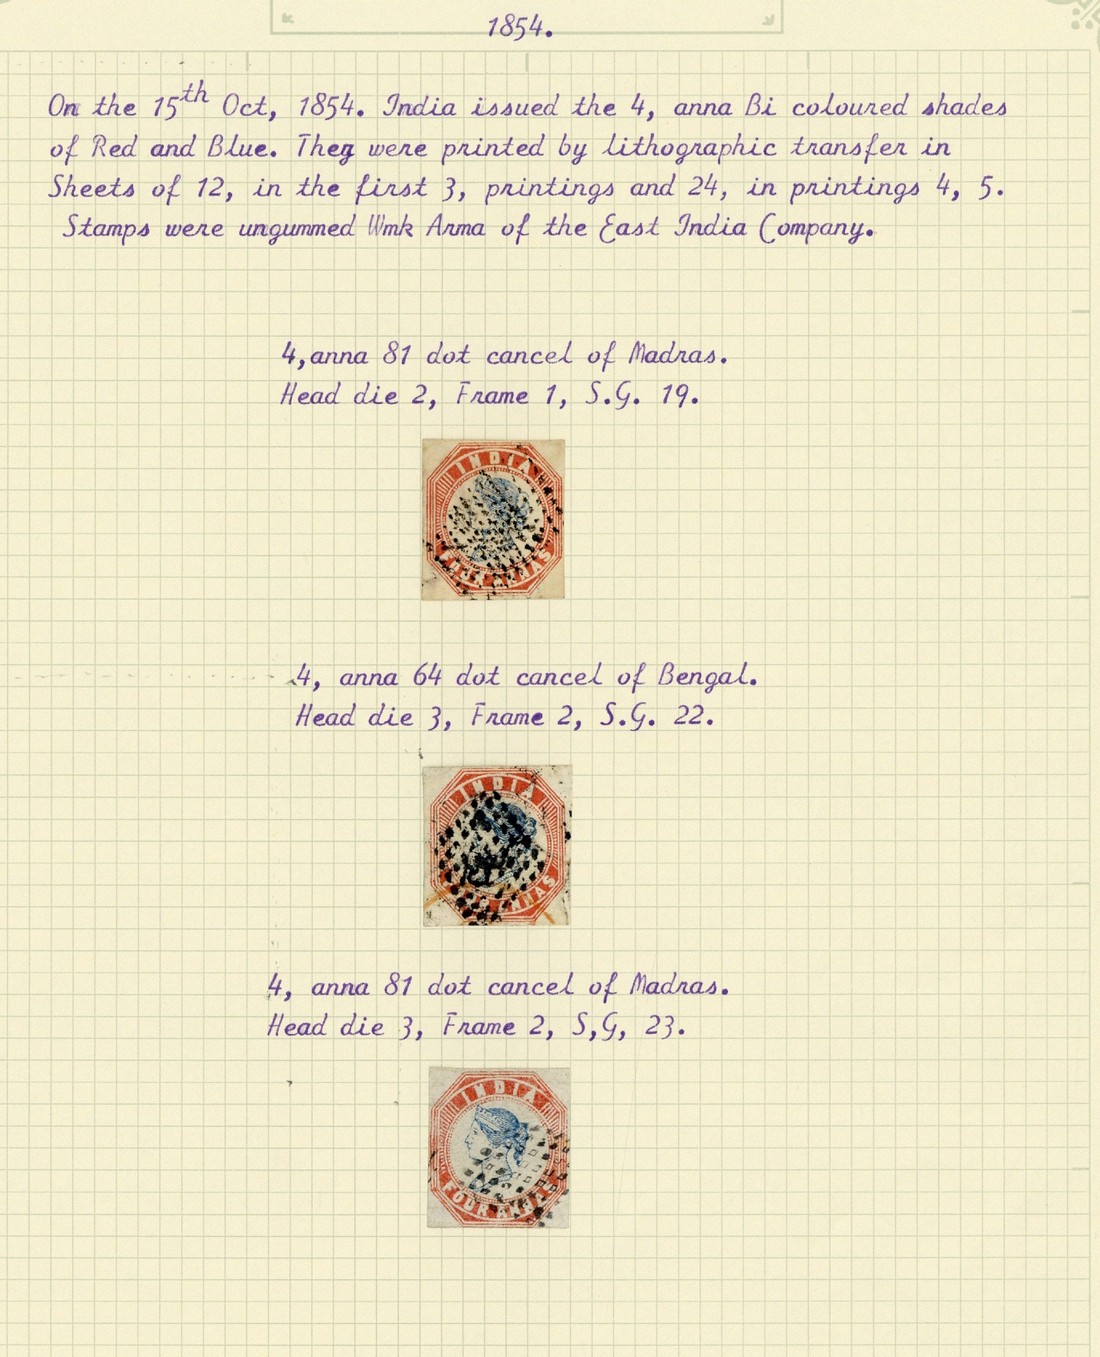 1854.
On the 15th Oct, 1854. India issued the 4, anna Bi coloured shades
of Red and Blue. They were printed by lithographic transfer in
Sheets of 12, in the first 3, printings and 24, in printings 4, 5.
Stamps were ungummed Wmk Arma of the East India Company.
4, anna 81 dot cancel of Madras.
Head die 2, Frame 1, S.G. 19.
INDIA
FOUR ANNAS
4, anna 64 dot cancel of Bengal.
Head die 3, Frame 2, S.G. 22.
INDIA
ANNAS
4, anna 81 dot cancel of Madras.
Head die 3, Frame 2, S,G, 23.
INDIA
FOUR ANNAS